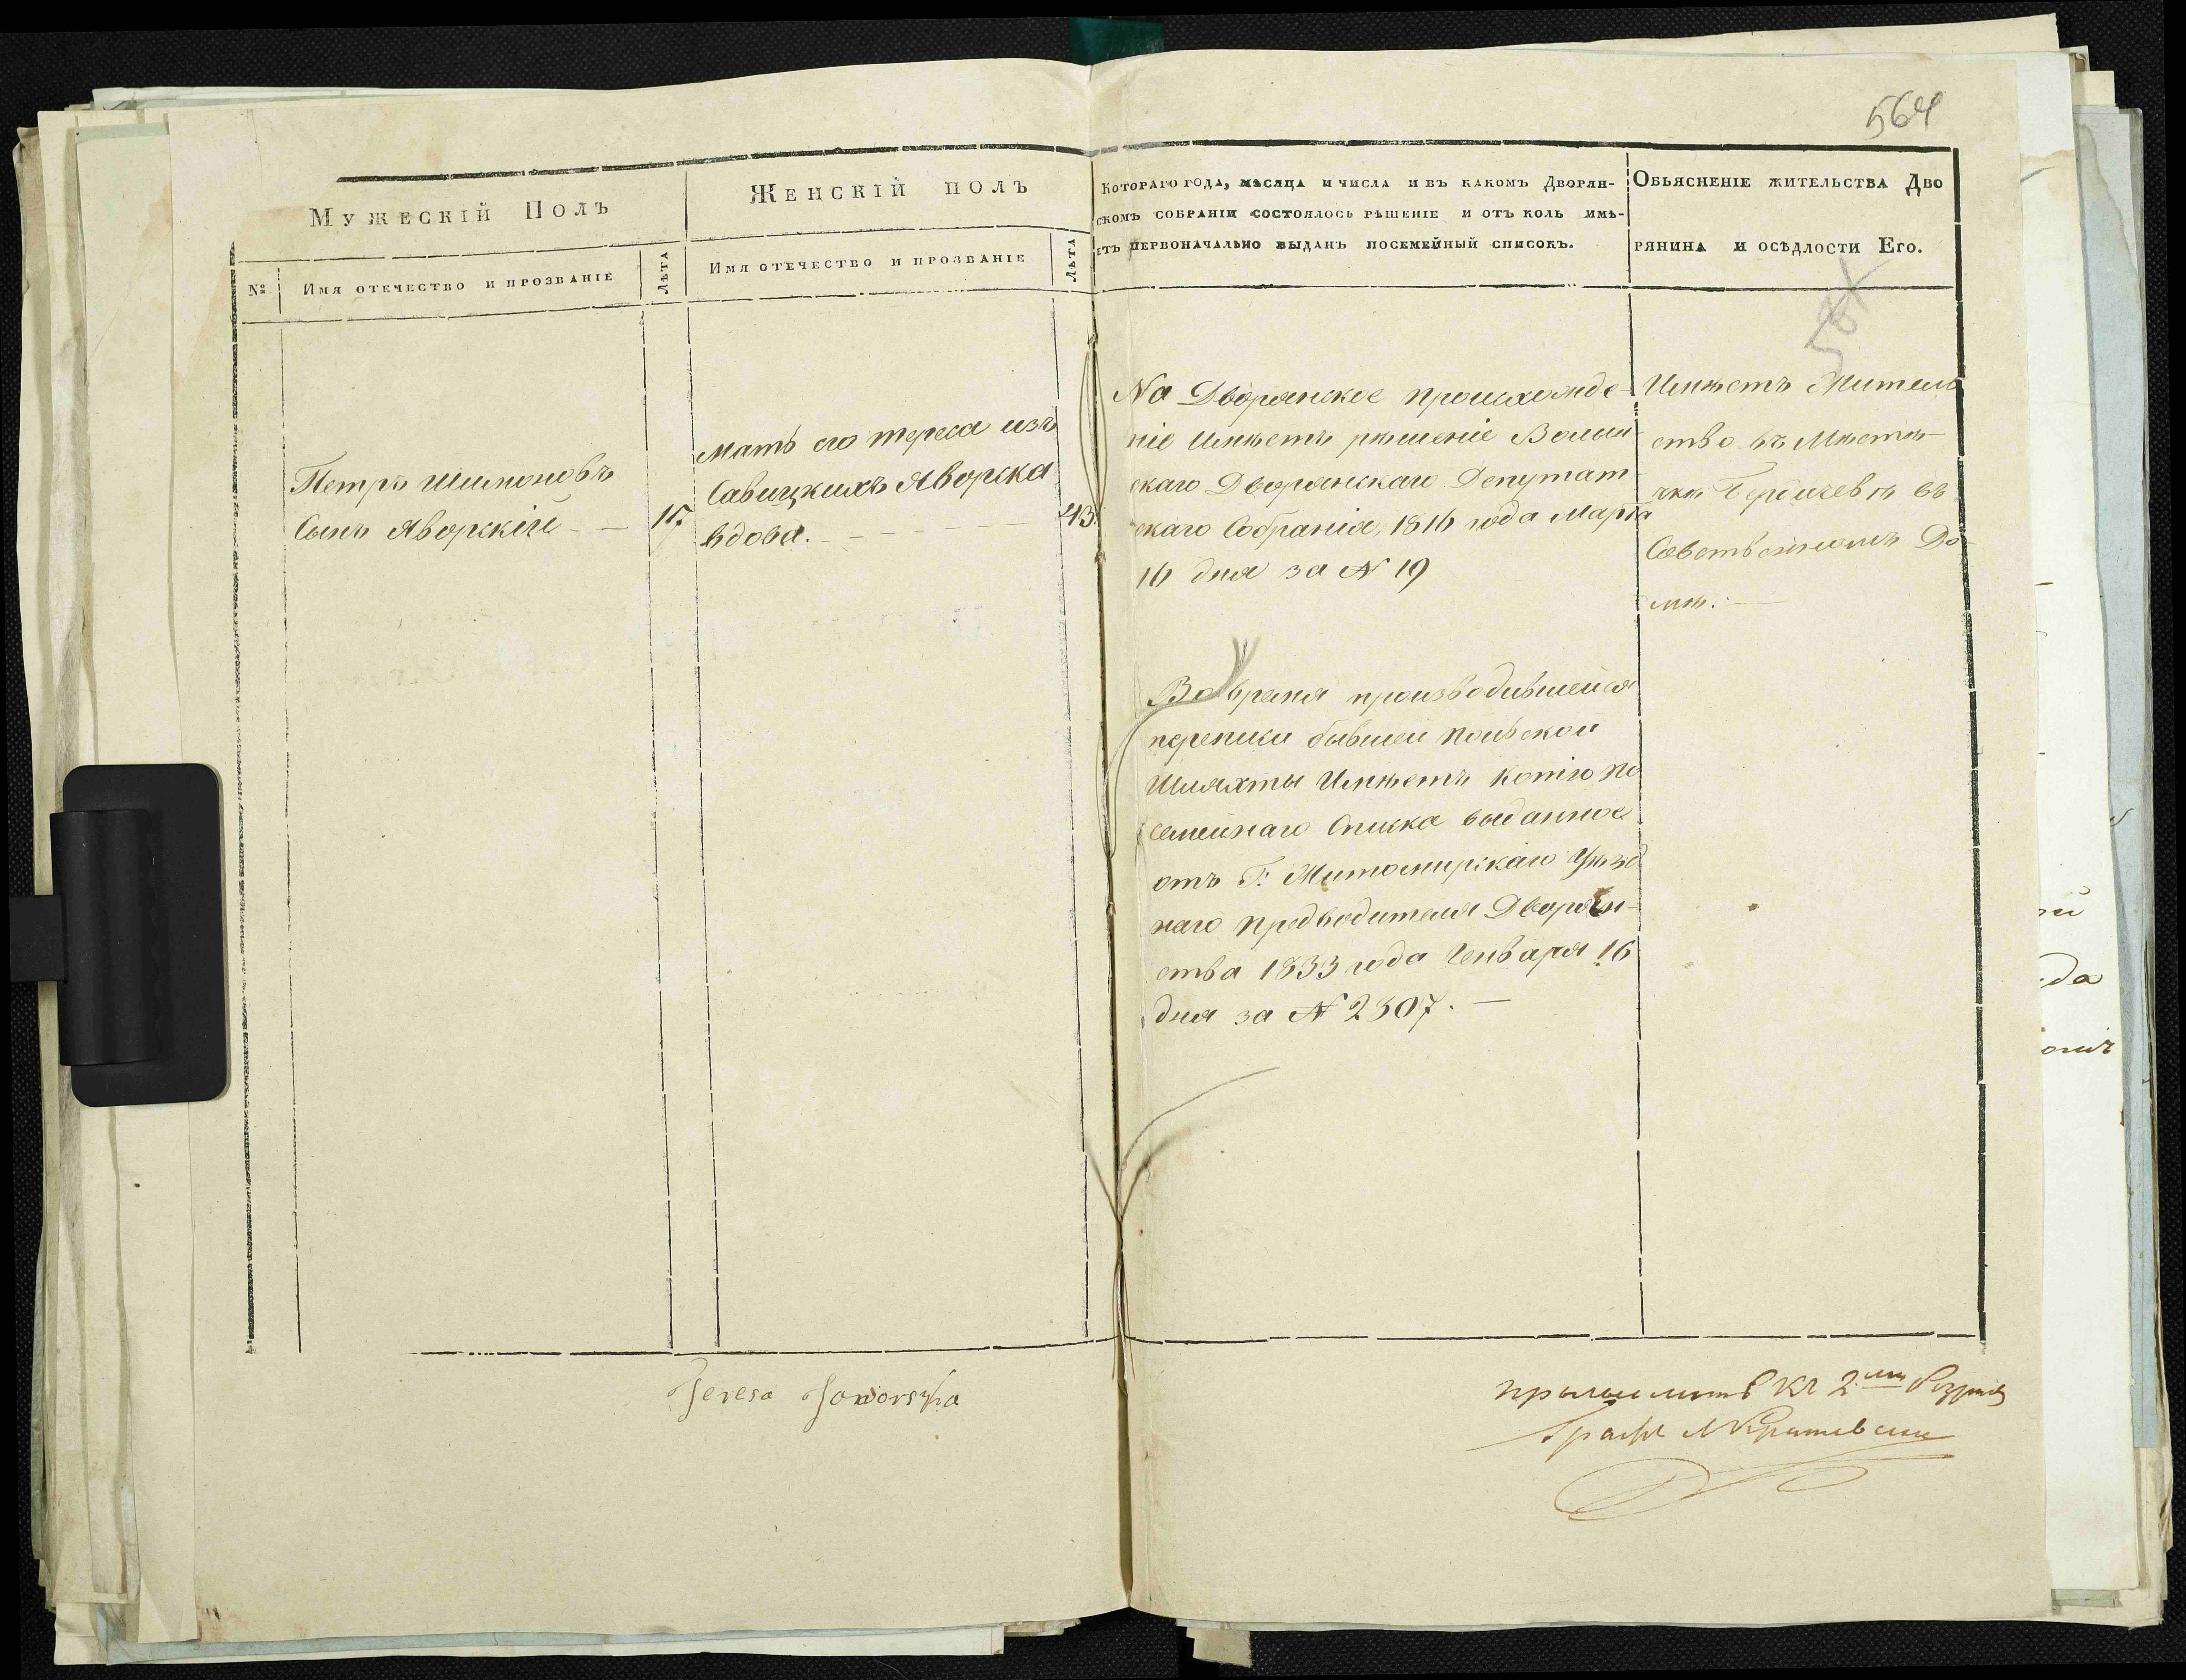 564
Мужескій Полъ
Женскій полъ
Котораго года, мѣсяца и числа и въ какомъ Дворян-
скомъ собраніи состоялось рѣшеніе и отъ коль имѣ-
етъ первоначально выданъ посемейный списокъ.
Обьясненіе жительства Дво
рянина и осѣдлости Его.
№
Имя отечество и прозваніе
Лѣта
Имя отечество и прозваніе
Лѣта
Петръ Шимоновъ
Сынъ Яворскій - —
17
Мать его тереса изъ
Савицкихъ Яворска
вдова. - - -
43
На Дворянское происхожде-
ніе Имѣетъ рѣшеніе Волын-
скаго Дворянскаго Депутат-
скаго Собранія, 1816 года Марта
16 дня за № 19
Во время производившейся
переписи бывшей Польской
Шляхты Имѣетъ Копію По
семейнаго Списка выданное
отъ Г: Житомирскаго Уѣзд
наго Предводителя Дворян-
ства 1833 года Генваря 16
дня за № 2307. —
Имѣетъ Житель
ство въ Мѣстѣ-
чкѣ Бердичевѣ въ
Собственномъ До-
мѣ. —
Teresa Jaworska
причислить къ 2му
Графъ